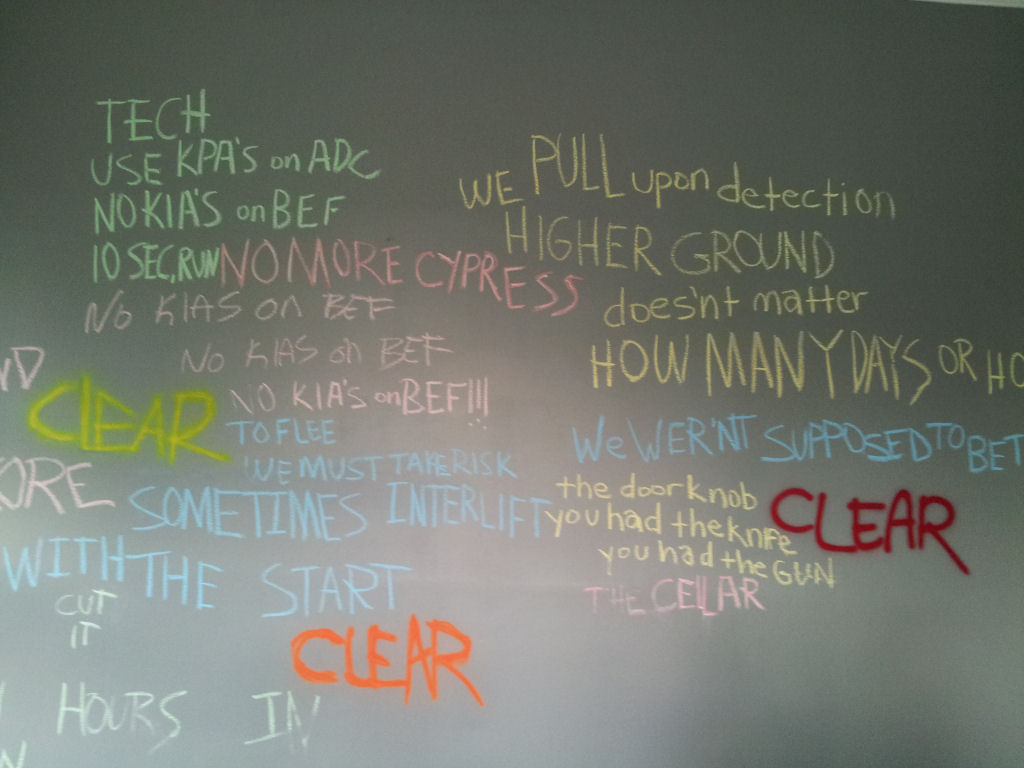 TECH
USE KPA'S on ADC
NO KIA'S on BEF
10 SEC, RUN
NO MORE CYPRESS
No KIAS on BEF
No KIAS on BEF
NO KIA'S on BEF!!!
CLEAR
TO FLEE
WE MUST TAKE RISK
ORE
SOMETIMES INTERLIFT
WITH THE START
CUT
IT
CLEAR
HOURS IN
WE PULL upon detection
HIGHER GROUND
does'nt matter
HOW MANY DAYS OR HO
We WER'NT SUPPOSED TO BET
the door knob
you had the knife
you had the GUN
THE CELLAR
CLEAR